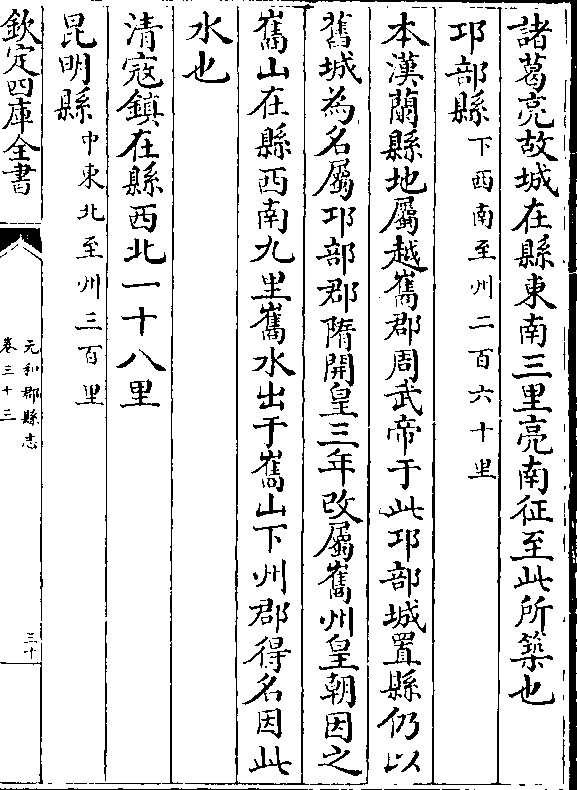 諸葛亮故城在縣東南三里亮南征至此所築也
邛部縣下西南至州二百六十里
本漢蘭縣地屬越嶲郡周武帝于此邛部城置縣仍以
舊城為名屬邛部郡隋開皇三年改屬嶲州皇朝因之
嶲山在縣西南九里嶲水出于嶲山下州郡得名因此
水也
清寇鎮在縣西北一十八里
昆明縣中東北至州三百里
欽定四庫全書
元和郡縣志
卷三十三
三十